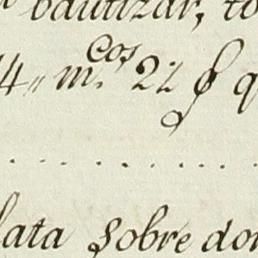 bautizar, to
4,, m.cos 2½ q
lata sobre dor